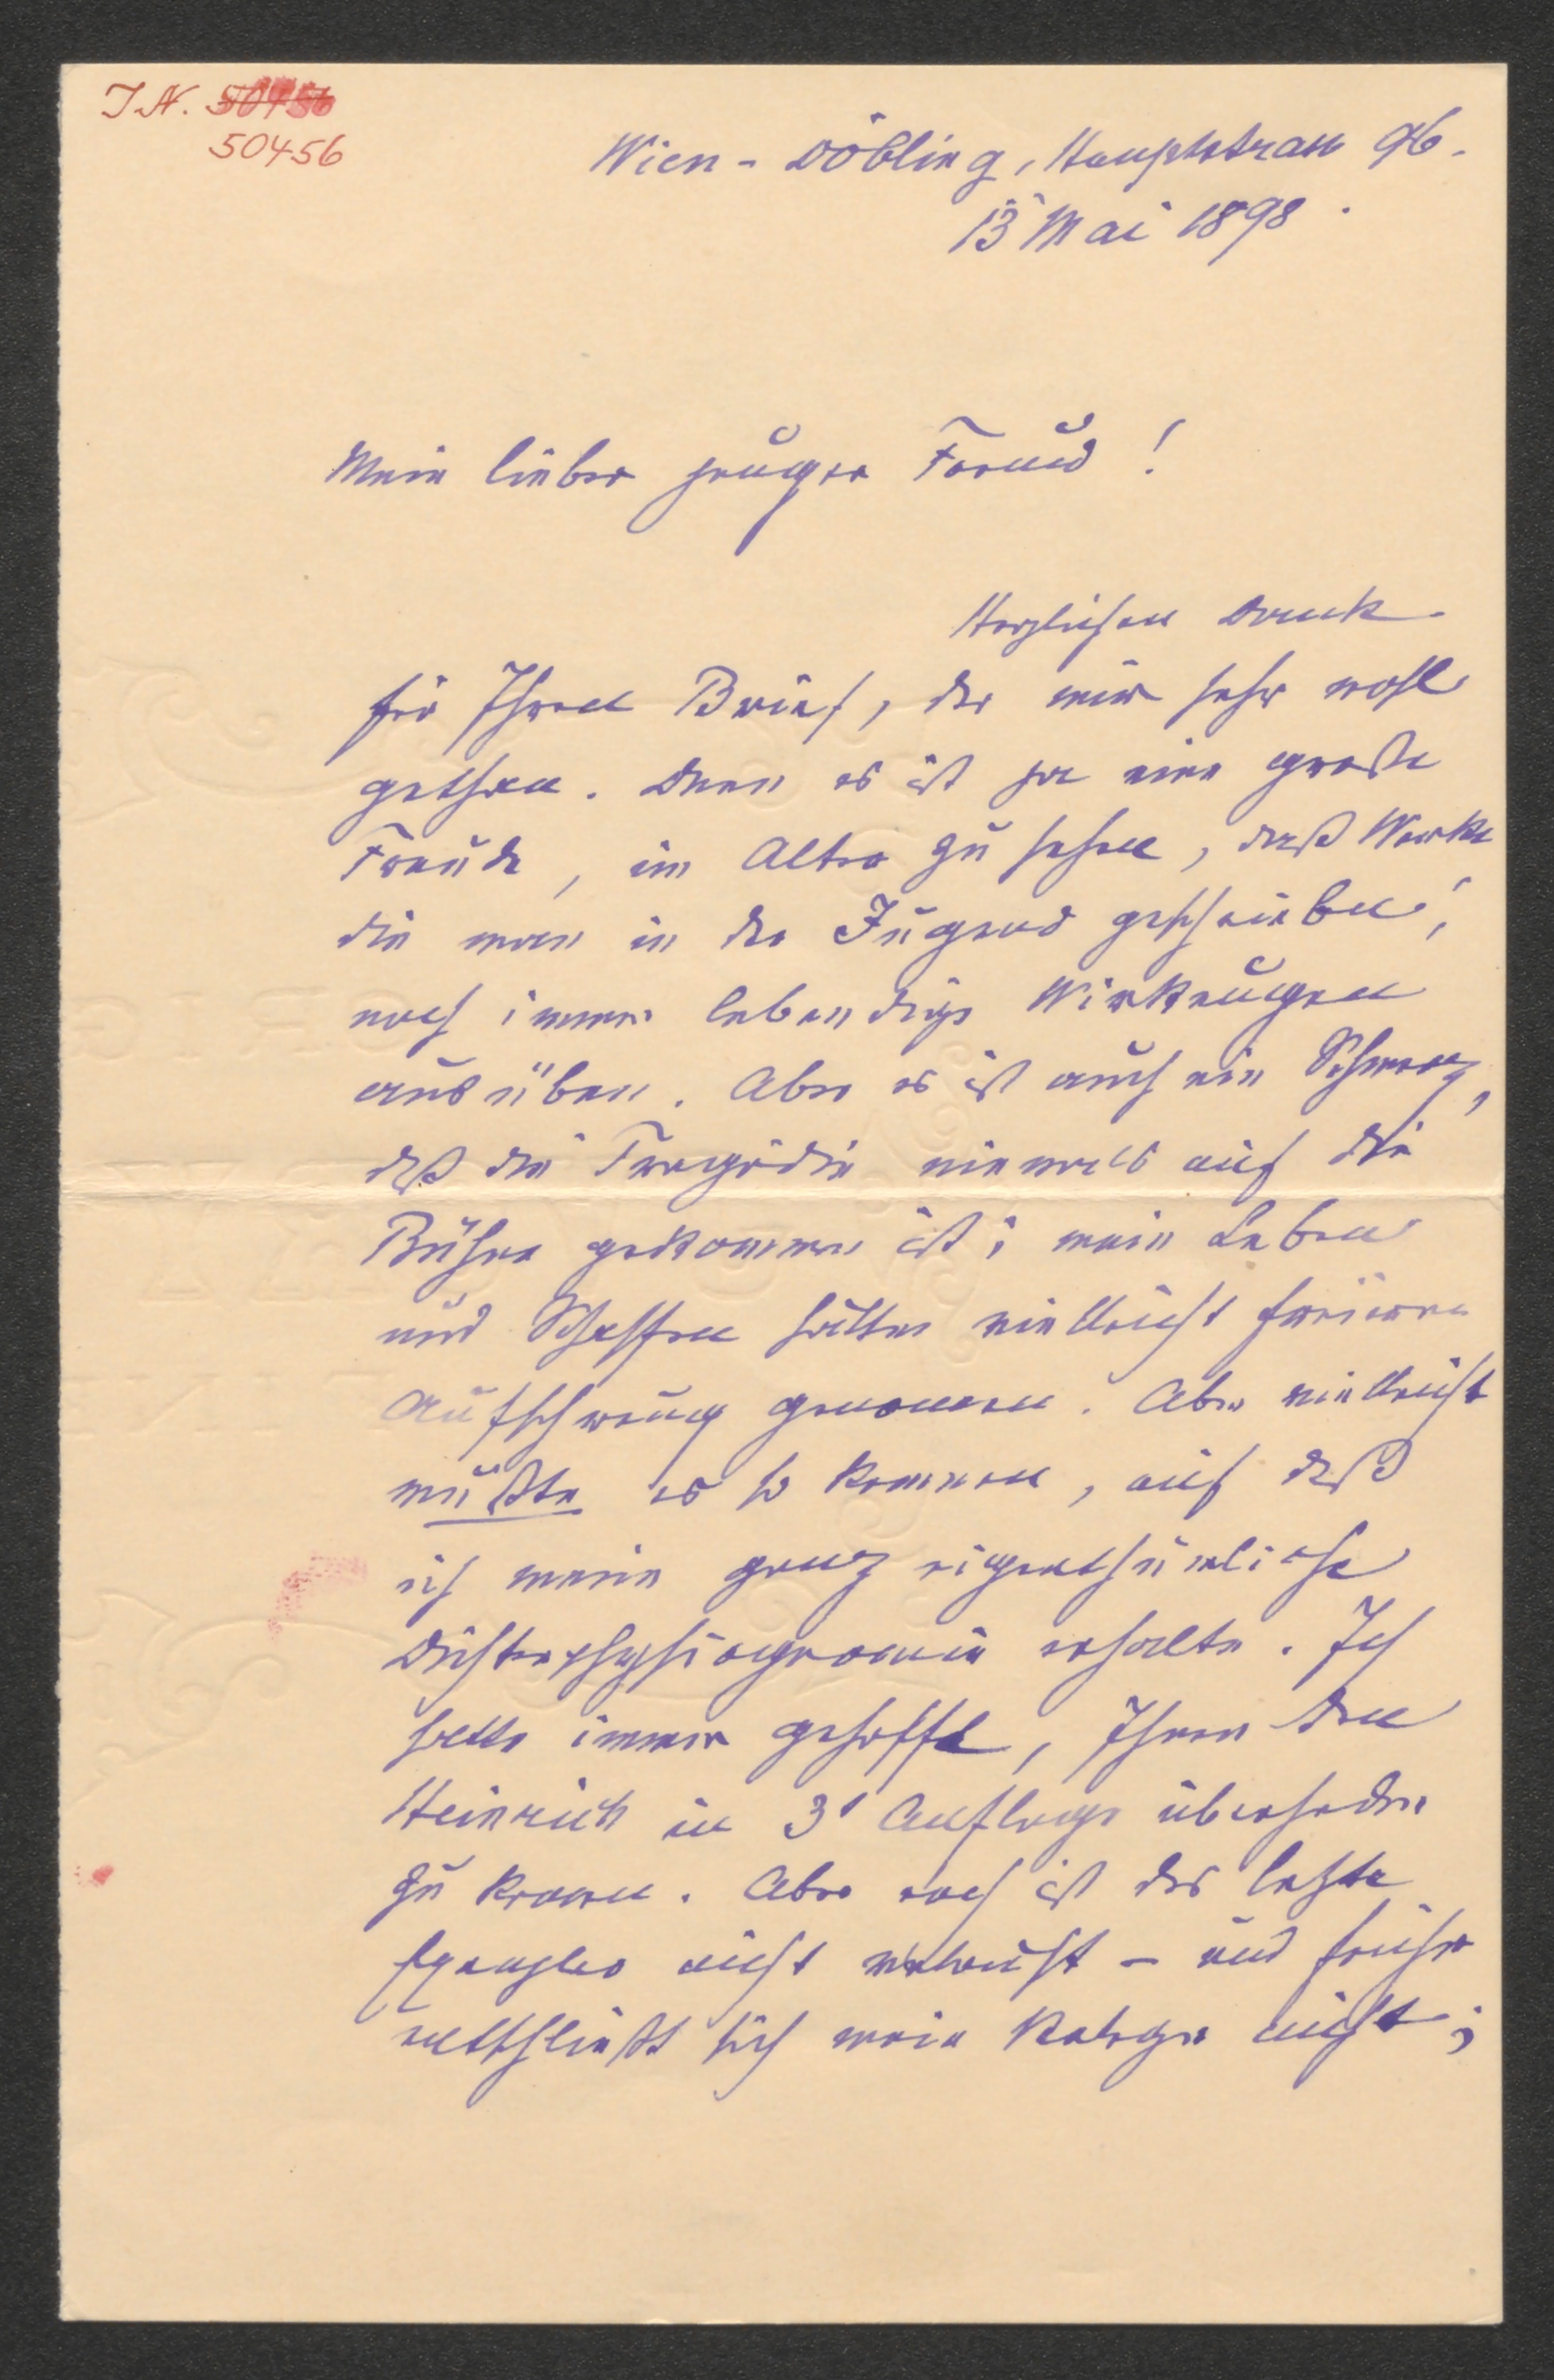 I. N. 50456
50456
Wien - Döbling, Hauptstrasse 96.
13 Mai 1898.
Mein lieber junger Freund!
Herzlichen Dank
für Ihren Brief, der mir sehr wohl
gethan. Denn es ist ja eine große
Freude, im Alter zu sehen, daß Werke
die man in der Jugend geschrieben,
noch immer lebendige Wirkungen
ausüben. Aber es ist auch ein Schmerz,
daß die Tragödie niemals auf die
Bühne gekommen ist; mein Leben
und Schaffen hätten vielleicht freieren
Aufschwung genommen. Aber vielleicht
mußte es so kommen, auf daß
ich meine ganz eigenthümliche
Dichterphysiognomie erhalte. Ich
hatte immer gehofft, Ihnen den
Heinrich in 3' Auflage übersenden
zu können. Aber noch ist das letzte
Exemplar nicht verkauft – und früher
entschließt sich mein Verleger nicht;